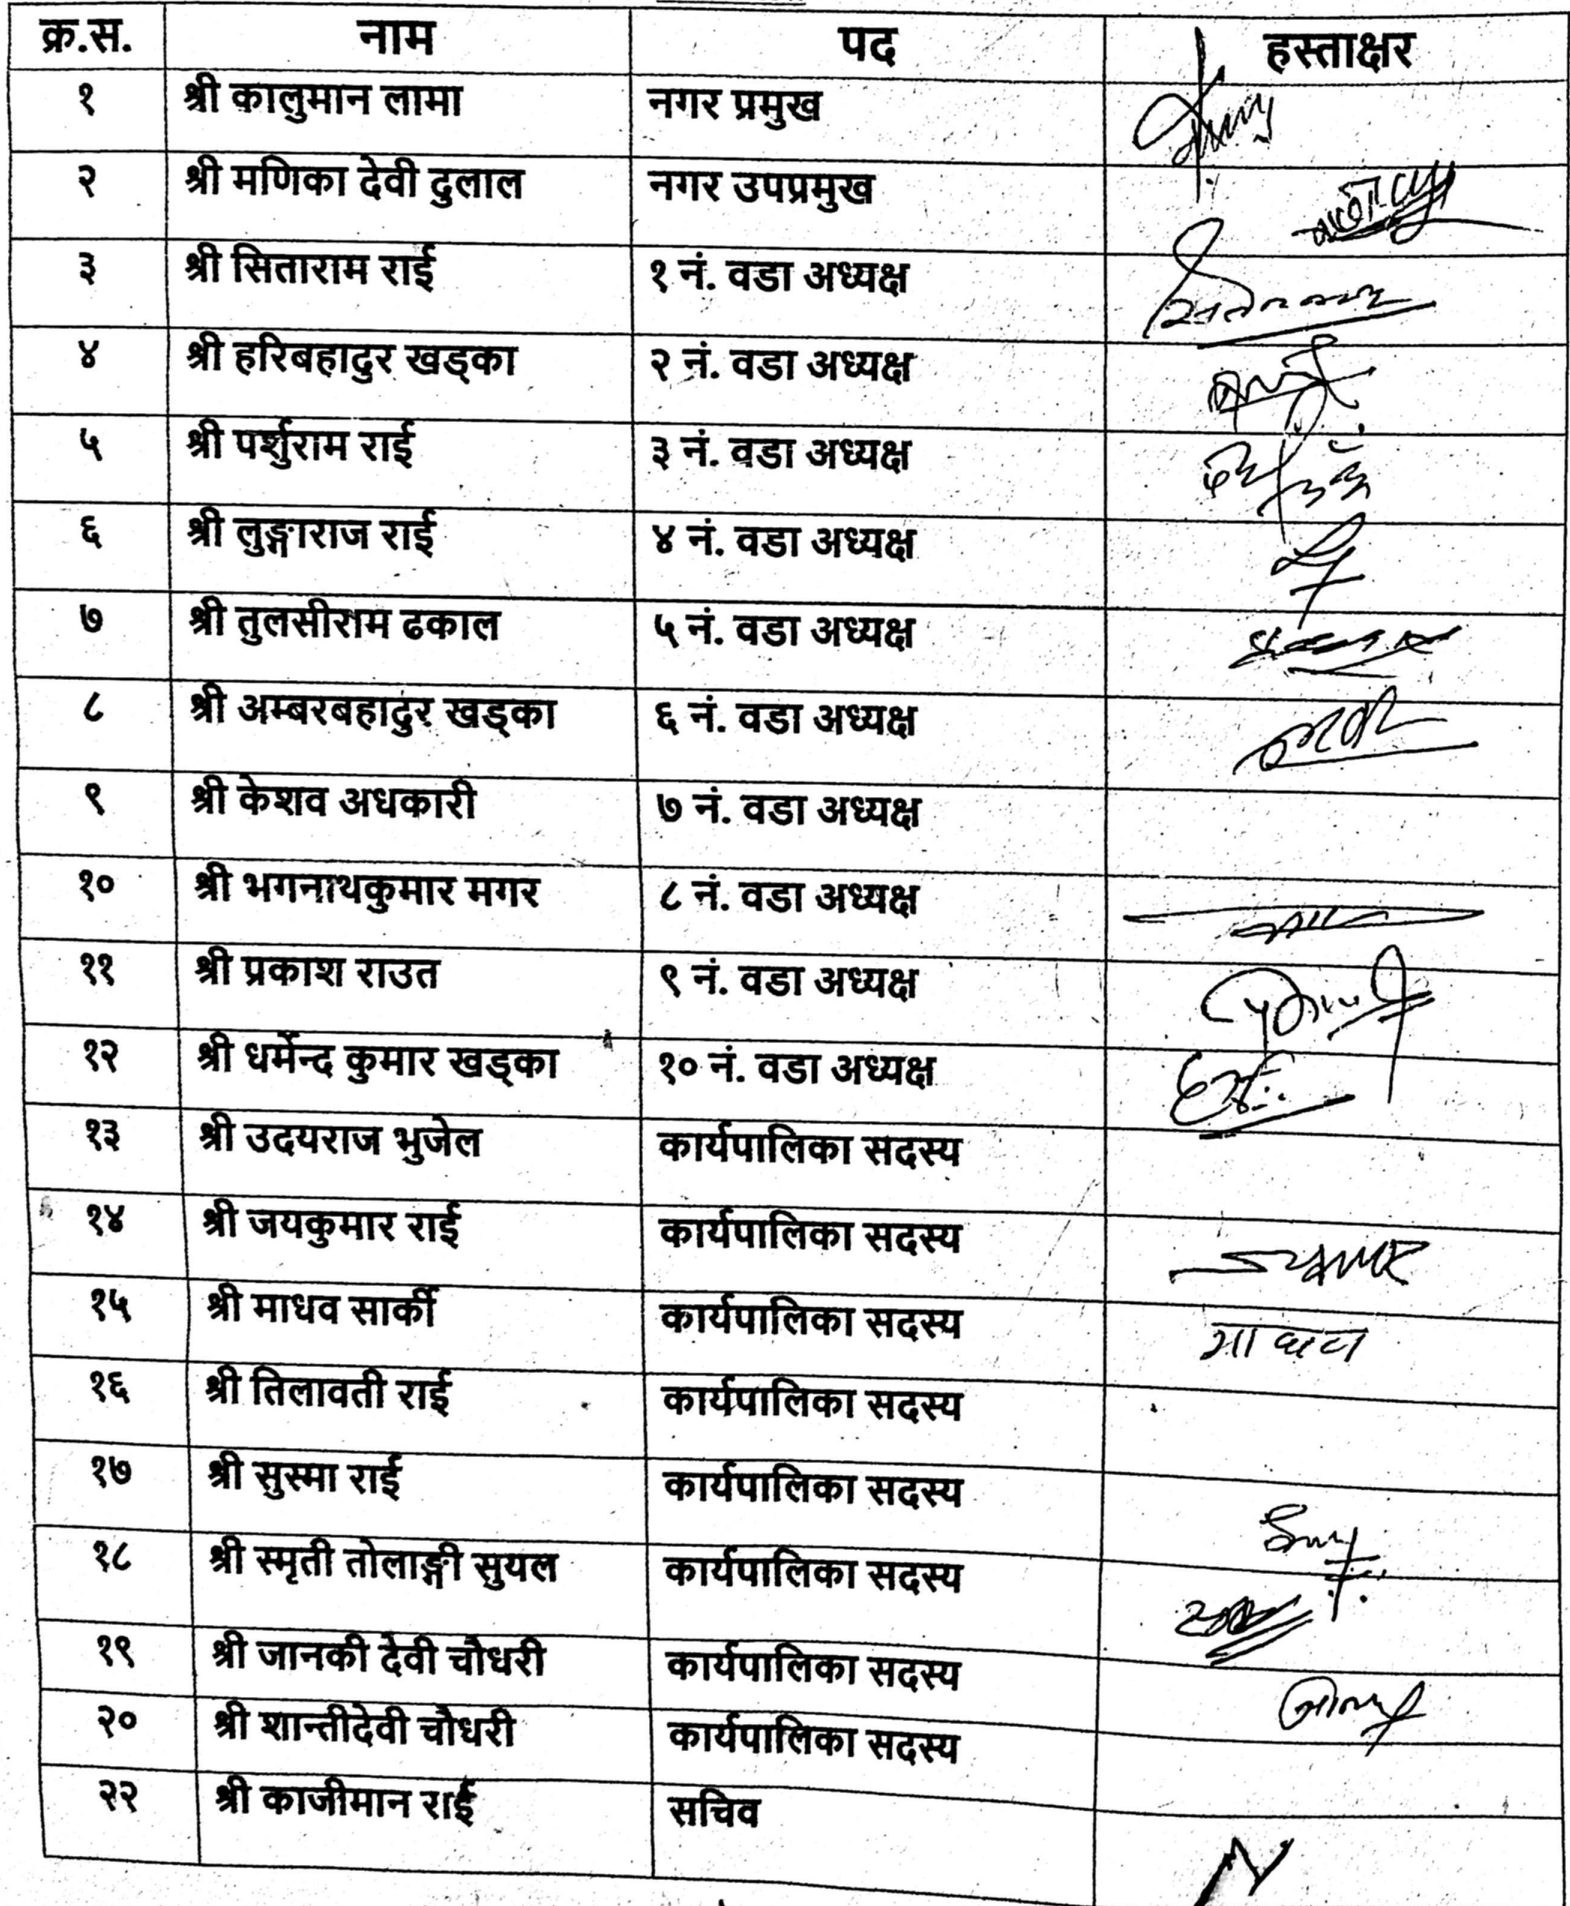 क्र.स. नाम पद हस्ताक्षर
१ श्री कालुमान लामा नगर प्रमुख
२ श्री मणिका देवी दुलाल नगर उपप्रमुख
३ श्री सिताराम राई १ नं. वडा अध्यक्ष
४ श्री हरिबहादुर खड्का २ नं. वडा अध्यक्ष
५ श्री पर्शुराम राई ३ नं. वडा अध्यक्ष
६ श्री लुङ्गाराज राई ४ नं. वडा अध्यक्ष
७ श्री तुलसीराम ढकाल ५ नं. वडा अध्यक्ष
८ श्री अम्बरबहादुर खड्का ६ नं. वडा अध्यक्ष
९ श्री केशव अधकारी ७ नं. वडा अध्यक्ष
१० श्री भगनाथकुमार मगर ८ नं. वडा अध्यक्ष
११ श्री प्रकाश राउत ९ नं. वडा अध्यक्ष
१२ श्री धर्मेन्द कुमार खड्का १० नं. वडा अध्यक्ष
१३ श्री उदयराज भुजेल कार्यपालिका सदस्य
१४ श्री जयकुमार राई कार्यपालिका सदस्य
१५ श्री माधव सार्की कार्यपालिका सदस्य माधव
१६ श्री तिलावती राई कार्यपालिका सदस्य
१७ श्री सुस्मा राई कार्यपालिका सदस्य
१८ श्री स्मृती तोलाङ्गी सुयल कार्यपालिका सदस्य
१९ श्री जानकी देवी चौधरी कार्यपालिका सदस्य
२० श्री शान्तीदेवी चौधरी कार्यपालिका सदस्य
२२ श्री काजीमान राई सचिव